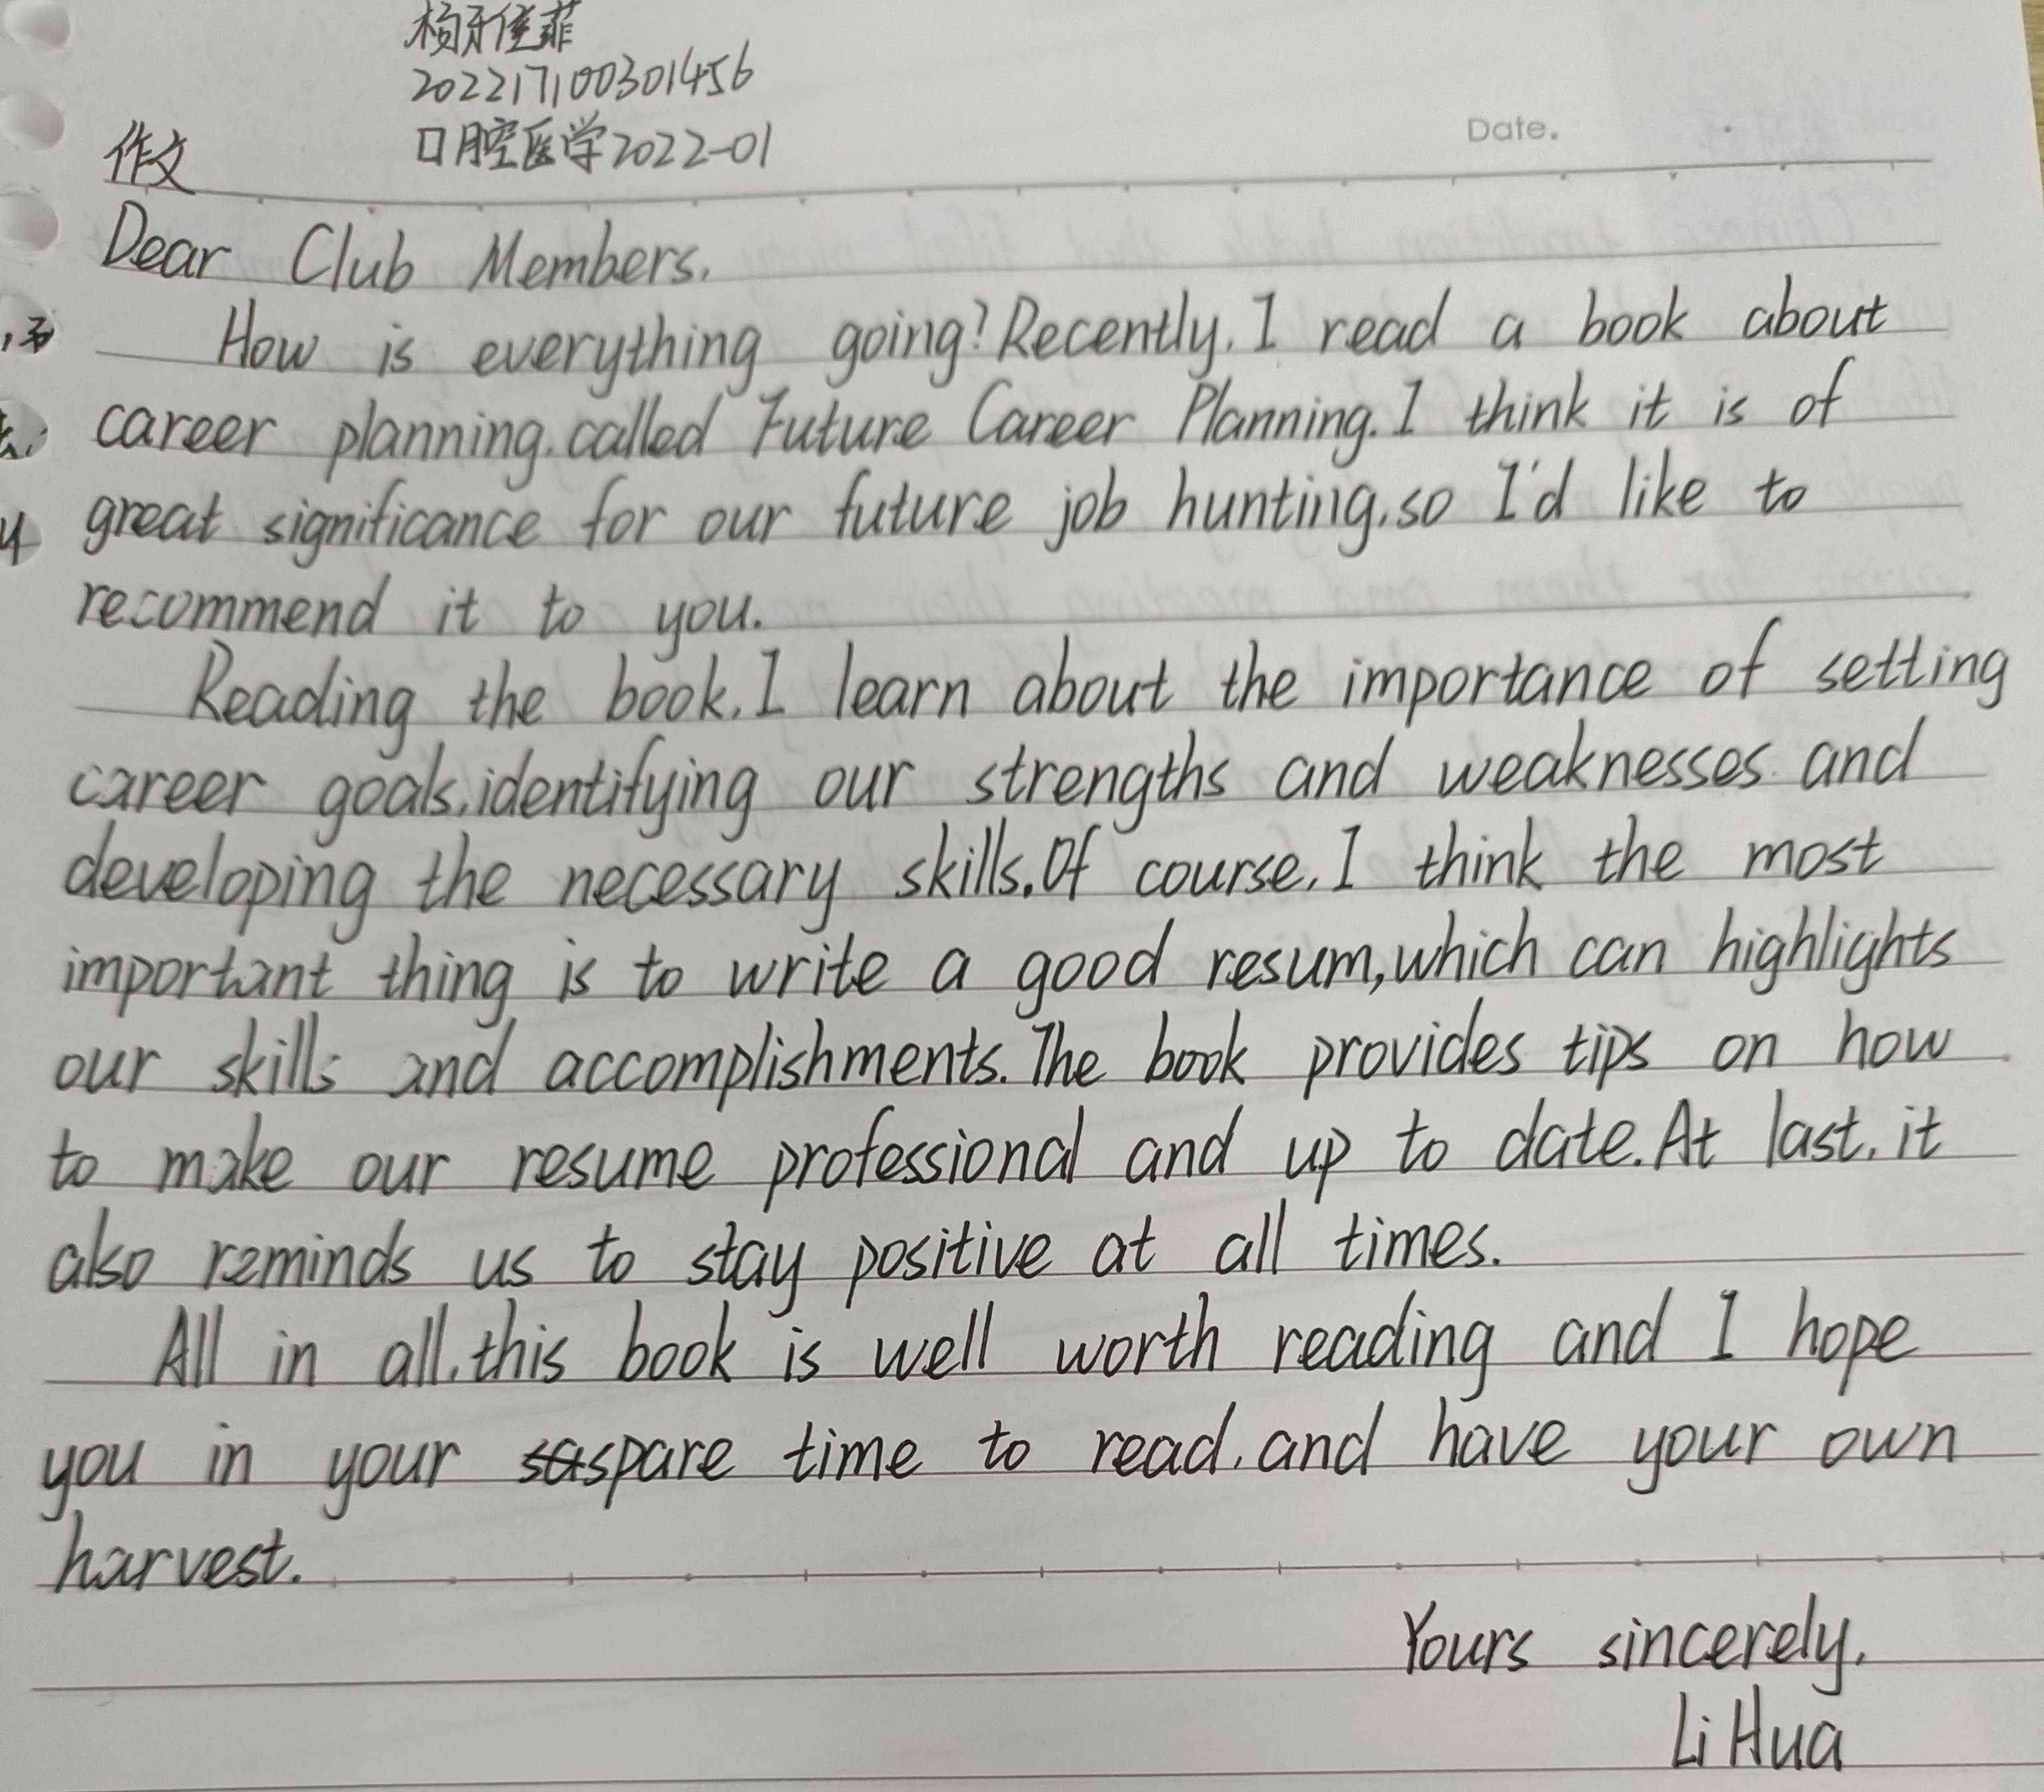 杨牙佳菲
202217100301456
口腔医学2022-01
Date.
作文
Dear Club Members,
How is everything going? Recently, I read a book about
career planning, called Future Career Planning. I think it is of
great significance for our future job hunting, so I'd like to
recommend it to you.
Reading the book, I learn about the importance of setting
career goals, identifying our strengths and weaknesses and
developing the necessary skills. Of course, I think the most
important thing is to write a good resum, which can highlights
our skills and accomplishments. The book provides tips on how
to make our resume professional and up to date. At last, it
also reminds us to stay positive at all times.
All in all, this book is well worth reading and I hope
you in your spare time to read, and have your own
harvest.
Yours sincerely,
Li Hua